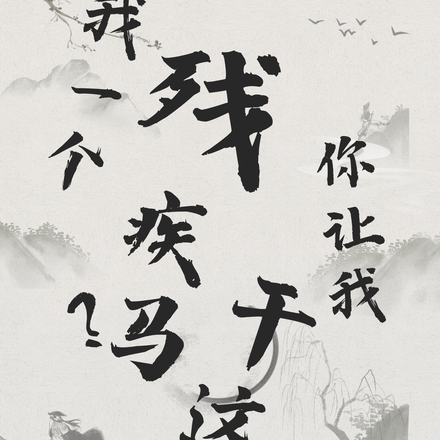 你让我
干这
残疾马
我一个
?